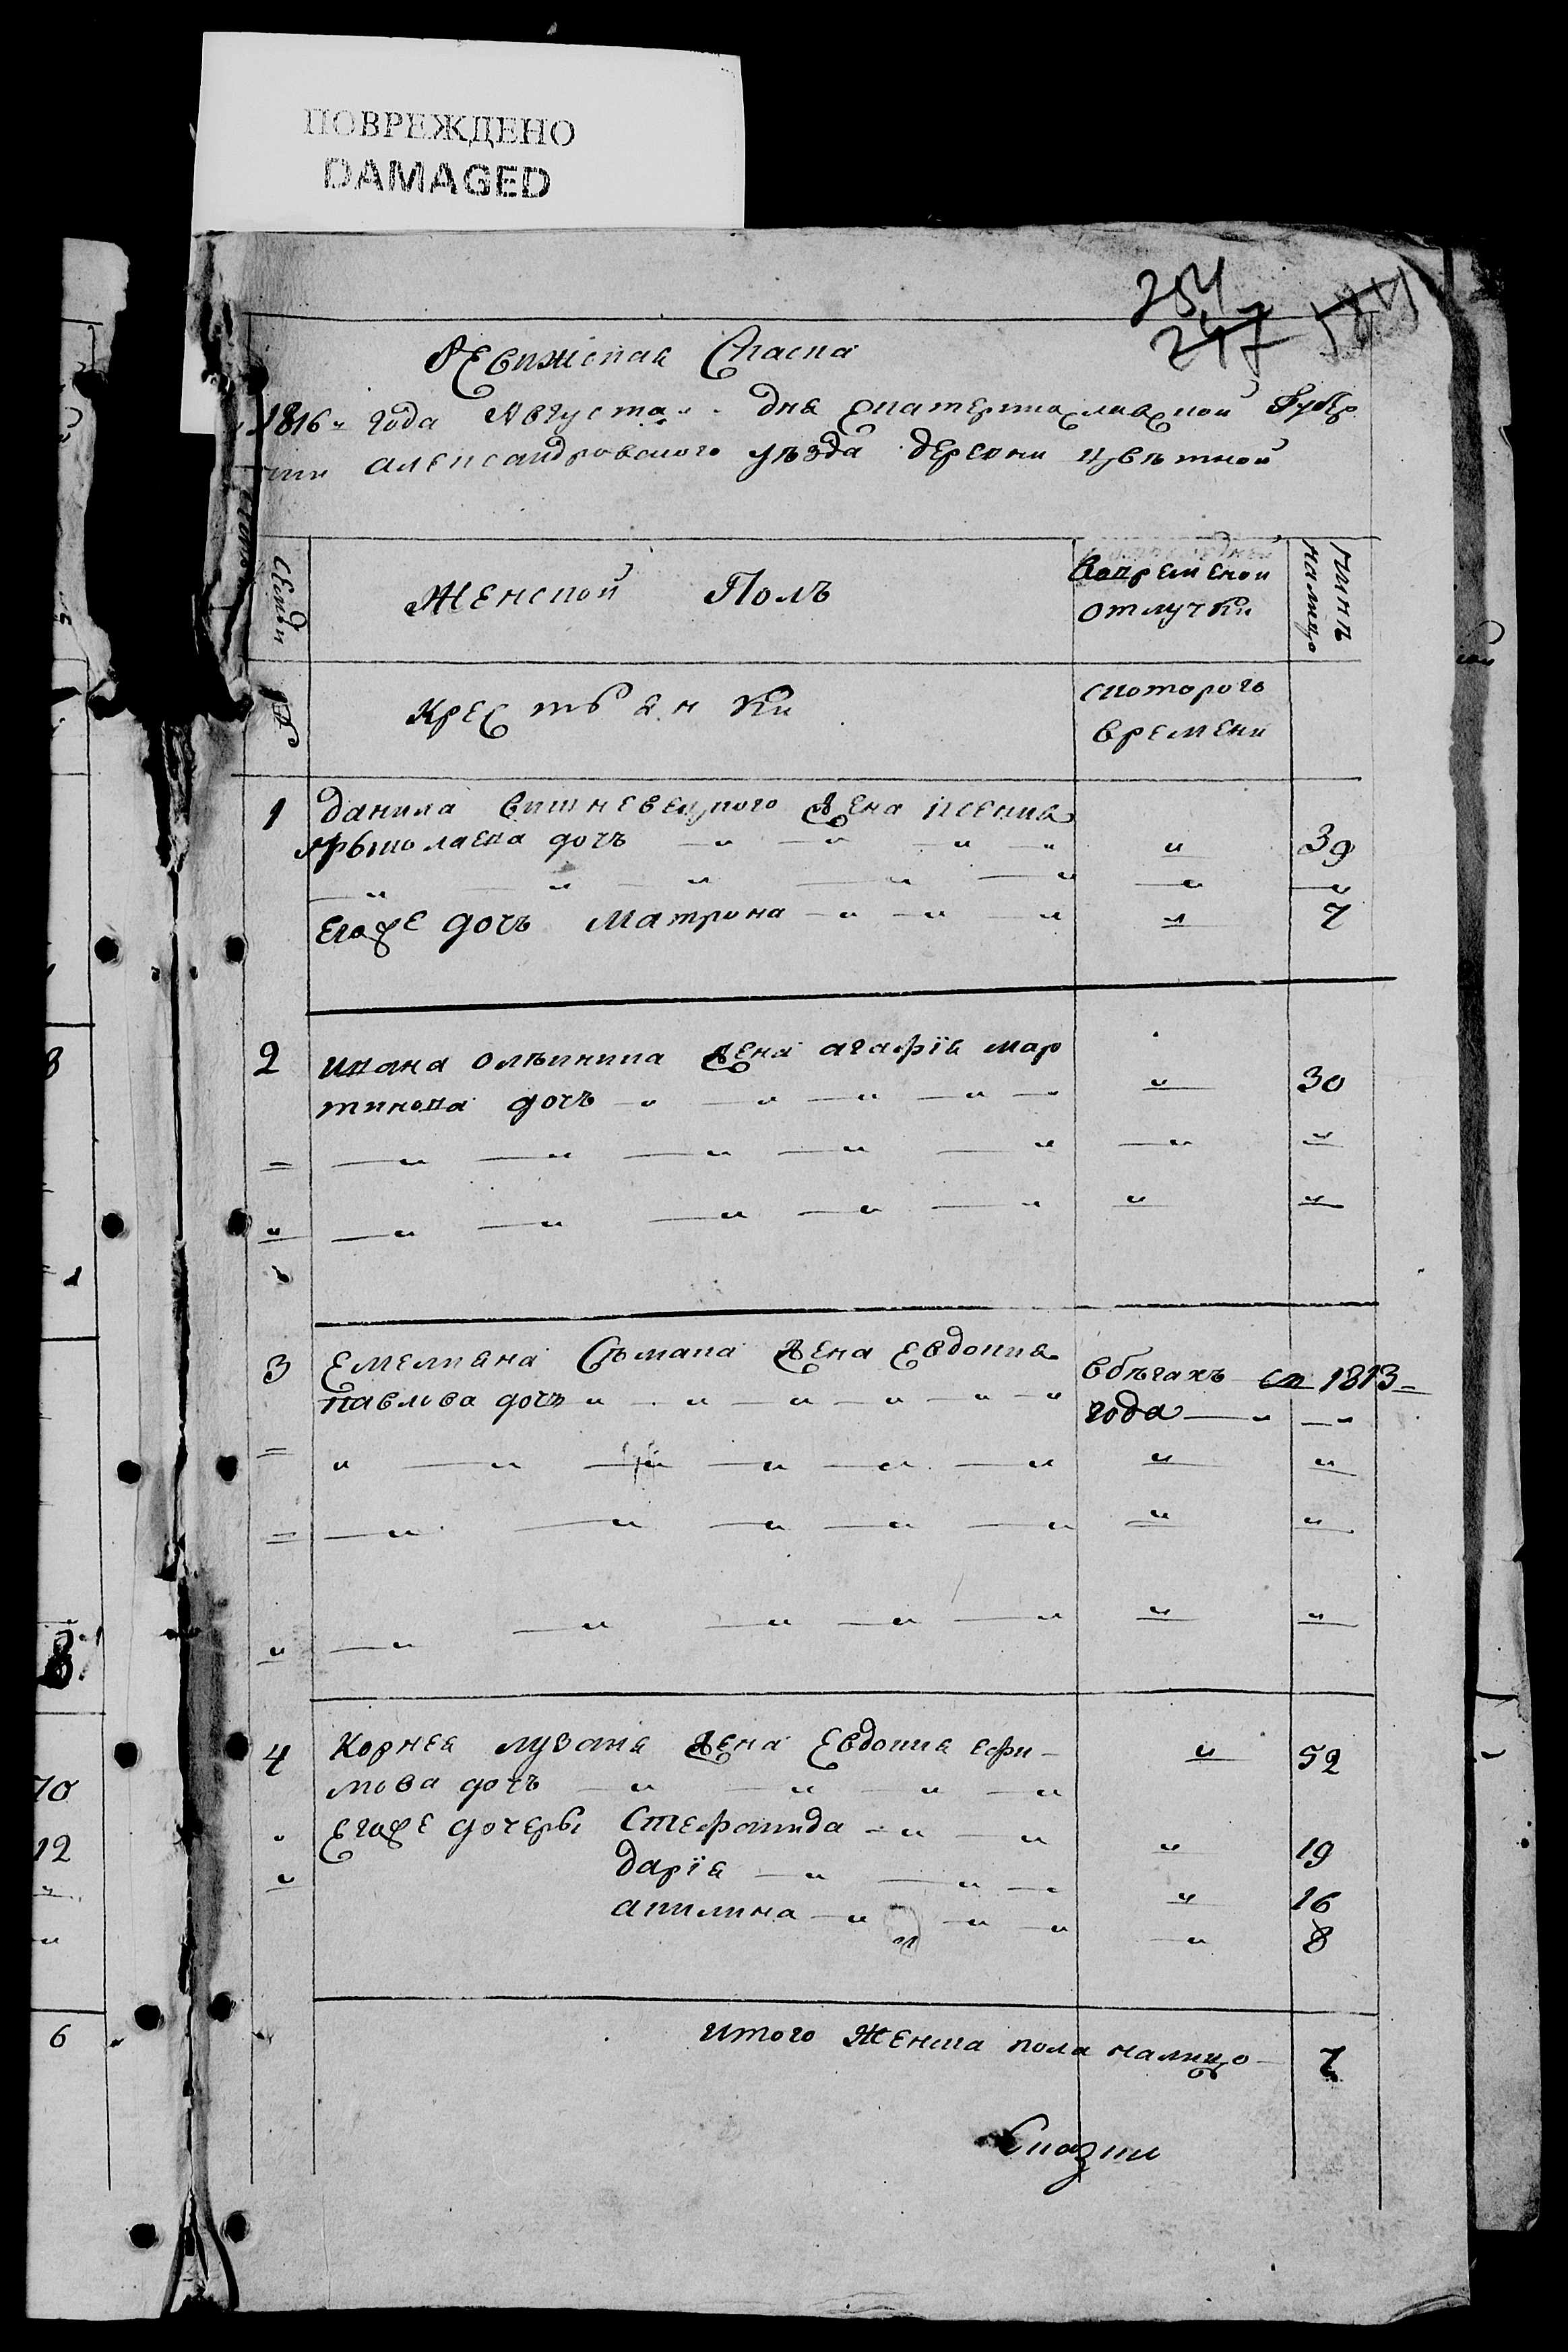 ПОВРЕЖДЕНО
DAMAGED
254
247
Ревижская Сказка
1816 года Августа " дня Екатеринославской Губер
нии Александровского уѣзда деревни Цвѣтной
№ Семьи
Женской Полъ
Вовременой
отлучки
нынѣ
налицо
Крестьянки
скоторого
времени
1 Данила Вишневецкого жена Ксения
дочъ — " — " — " — " " 39
— " — " — " — " — " — " — "
Егоже дочъ Матрона — " — " — " " 7
2 Ивана жена агафїя мар
тинова дочъ — " — " — " — " — " " 30
— " — " — " — " — " — " "
" — " — " — " — " — " " "
3 Емелияна жена Евдокия вбѣгахъ съ 1813
павлова дочъ " — " — " — " — " — " года — " — "
" — " — " — " — " — " " "
— " — " — " — " — " " "
" — " — " — " — " — " " "
4 Корнея лузана жена Евдокия ефи-
мова дочъ — " — " — " — " " 52
" Егоже дочеры Стефанида — " — " " 19
" Дарїя — " — " — " " 16
акилина — " — " — " — " 8
Итого Женска пола налицо 7